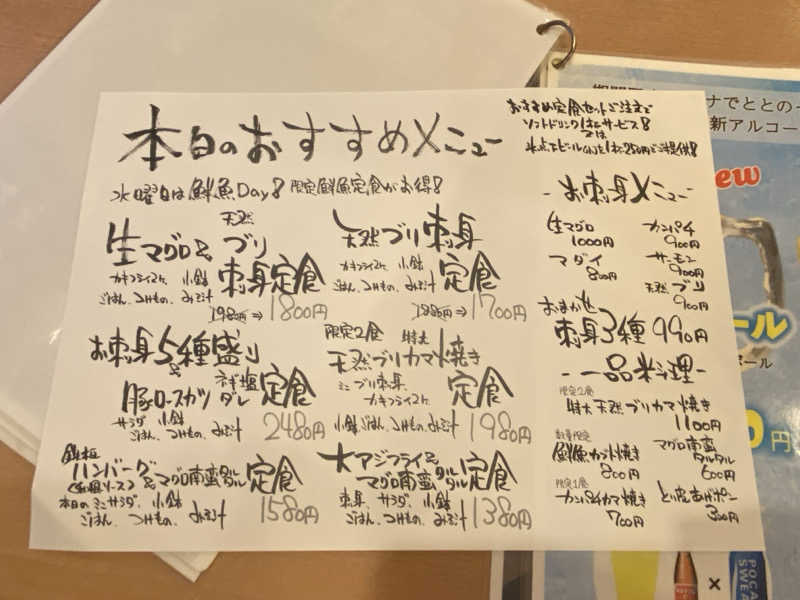 本日のおすすめメニュー
水曜日は鮮魚Day♪ 限定鮮魚定食がお得♪
おすすめ定食セットご注文で
ソフトドリンク1杯サービス♪
又は
1杯250円でご提供♪
生マグロ& 天然ブリ
刺身定食
カキフライ2ケ、小鉢
ごはん、つけもの、みそ汁
1980円⇒1800円
天然ブリ刺身
定食
カキフライ2ケ、小鉢
ごはん、つけもの、みそ汁
1880円⇒1700円
お刺身5種盛り
&
豚ロースカツ ネギ塩ダレ 定食
サラダ、小鉢
ごはん、つけもの、みそ汁
2480円
限定2食 特大
天然ブリカマ焼き
定食
ミニブリ刺身
カキフライ2ケ
小鉢、ごはん、つけもの、みそ汁
1980円
鉄板
ハンバーグ
&マグロ南蛮タルタル 定食
本日のミニサラダ、小鉢
ごはん、つけもの、みそ汁
1580円
大アジフライ&
マグロ南蛮タルタル 定食
刺身、サラダ、小鉢
ごはん、つけもの、みそ汁
1380円
-お刺身メニュー-
生マグロ
1000円
カンパチ
900円
マダイ
800円
サーモン
900円
天然ブリ
900円
おまかせ
刺身3種 990円
-一品料理-
限定2食
特大天然ブリカマ焼き
1100円
数量限定
鮮魚カブト焼き
800円
マグロ南蛮
タルタル
600円
限定1食
カンパチカマ焼き
700円
300円
ナでととのっ
新アルコー
ew
ール
ボール
円
×
POCA
SWEA